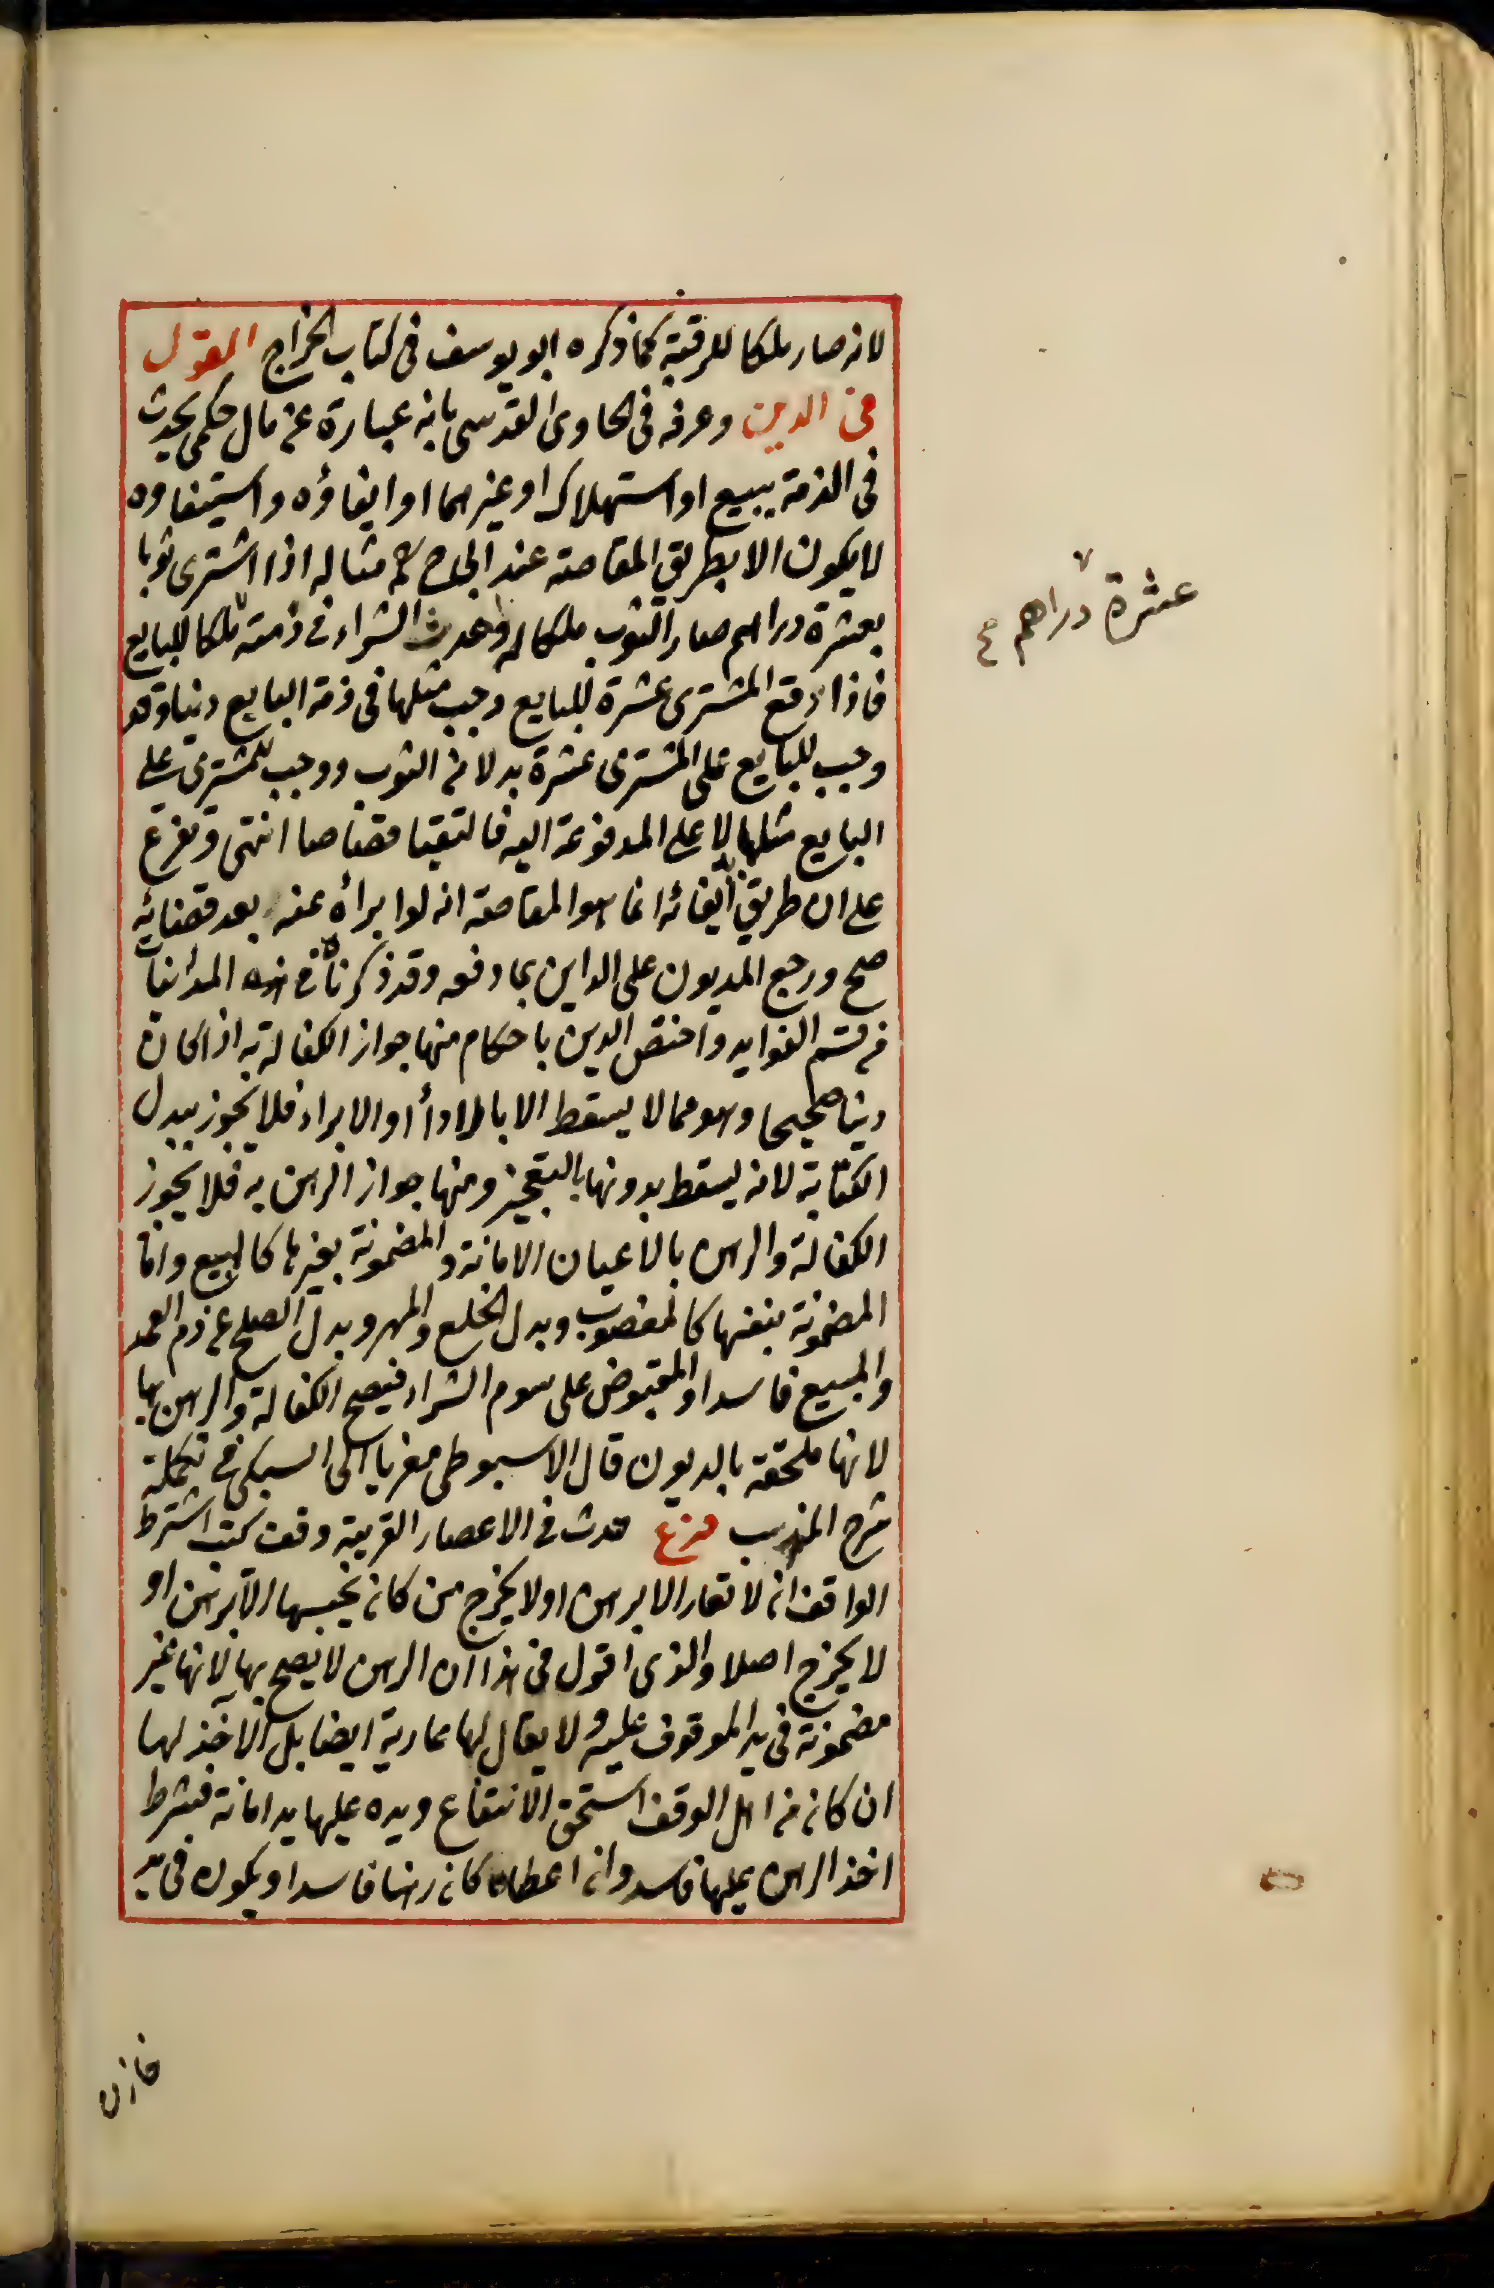 لانه صار ملكا للرقبة كما ذكره ابو يوسف في كتاب الخراج القول
في الدين وعرفه في الحاوى القدسى بانه عبارة عن مال حكمى يحدث
في الذمة ببيع او استهلاك او غيرهما او ايفاؤه واستيفاوه
لا يكون الا بطريق المقاصة عند ابى ح رحمه مثاله اذا اشترى ثوبا
بعشرة دراهم صار الثوب ملكا له وحدث الشراء في ذمته ملكا للبايع
فاذا دفع المشترى عشرة للبايع وجب مثلها في ذمة البايع دينا وقد
وجب للبايع على المشترى عشرة بدلا من الثوب ووجب للمشترى على
البايع مثلها بدلا على المدفوعة اليه فالتقيا قصاصا انتهى وتفرع
على ان طريق ايفائه انما هو المقاصة انه لو ابرأه عنه بعد قضائه
صح ورجع المديون على الداين بما دفعه وقد ذكرناه في هذه المداينات
من قسم الفوايد واختص الدين باحكام منها جواز الكفالة به اذا كان
دينا صحيحا وهو مما لا يسقط الا بالادأ او الابراء فلا تجوز ببدل
الكتابة لانه يسقط بدونها بالتعجيز ومنها جواز الرهن به فلا يجوز
الكفالة والرهن بالاعيان الامانة والمضمونة بغيرها كالمبيع واما
المضمونة بنفسها كالمغصوب وبدل الخلع والمهر وبدل الصلح عن دم العمد
والمبيع فاسدا والمقبوض على سوم الشراء فيصح الكفالة والرهن بها
لانها ملحقة بالديون قال الاسيوطى معزيا الى السبكى في تكملة
شرح المهذب فرع حدث في الاعصار القريبة وقف كتب اشترط
الواقف ان لا تعار الا برهن او لا يخرج من كان تحبيسها الا برهن او
لا يخرج اصلا والذى اقول في هذا ان الرهن لا يصح بها لانها غير
مضمونة في يد الموقوف عليه ولا يقال لها عارية ايضا بل الآخذ لها
ان كان من اهل الوقف استحق الانتفاع ويده عليها يد امانة فشرط
اخذ الرهن عليها فاسد وان اعطاه كان رهنا فاسدا ويكون في يد
عشرة دراهم
خازن